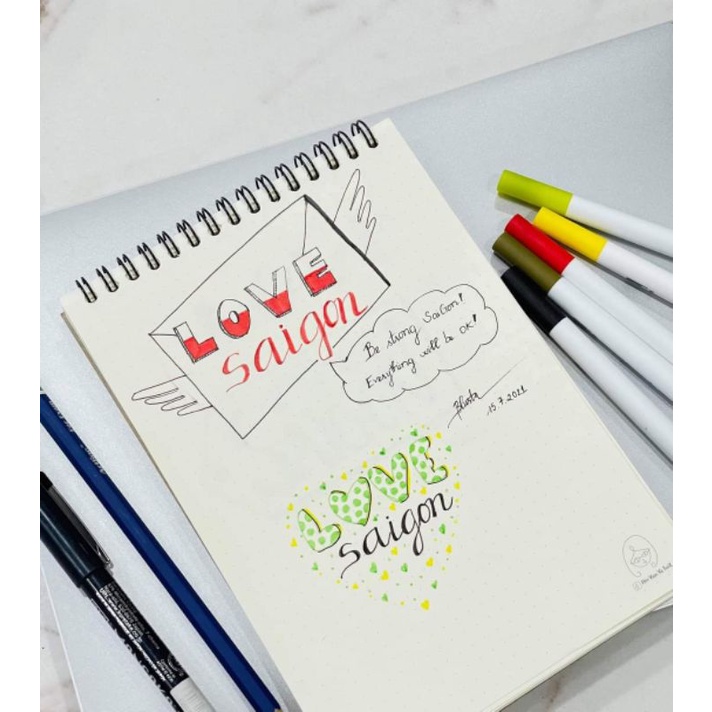 LOVE
saigon
Be strong SaiGon!
Everything will be OK!
15.7.2021
LOVE
saigon